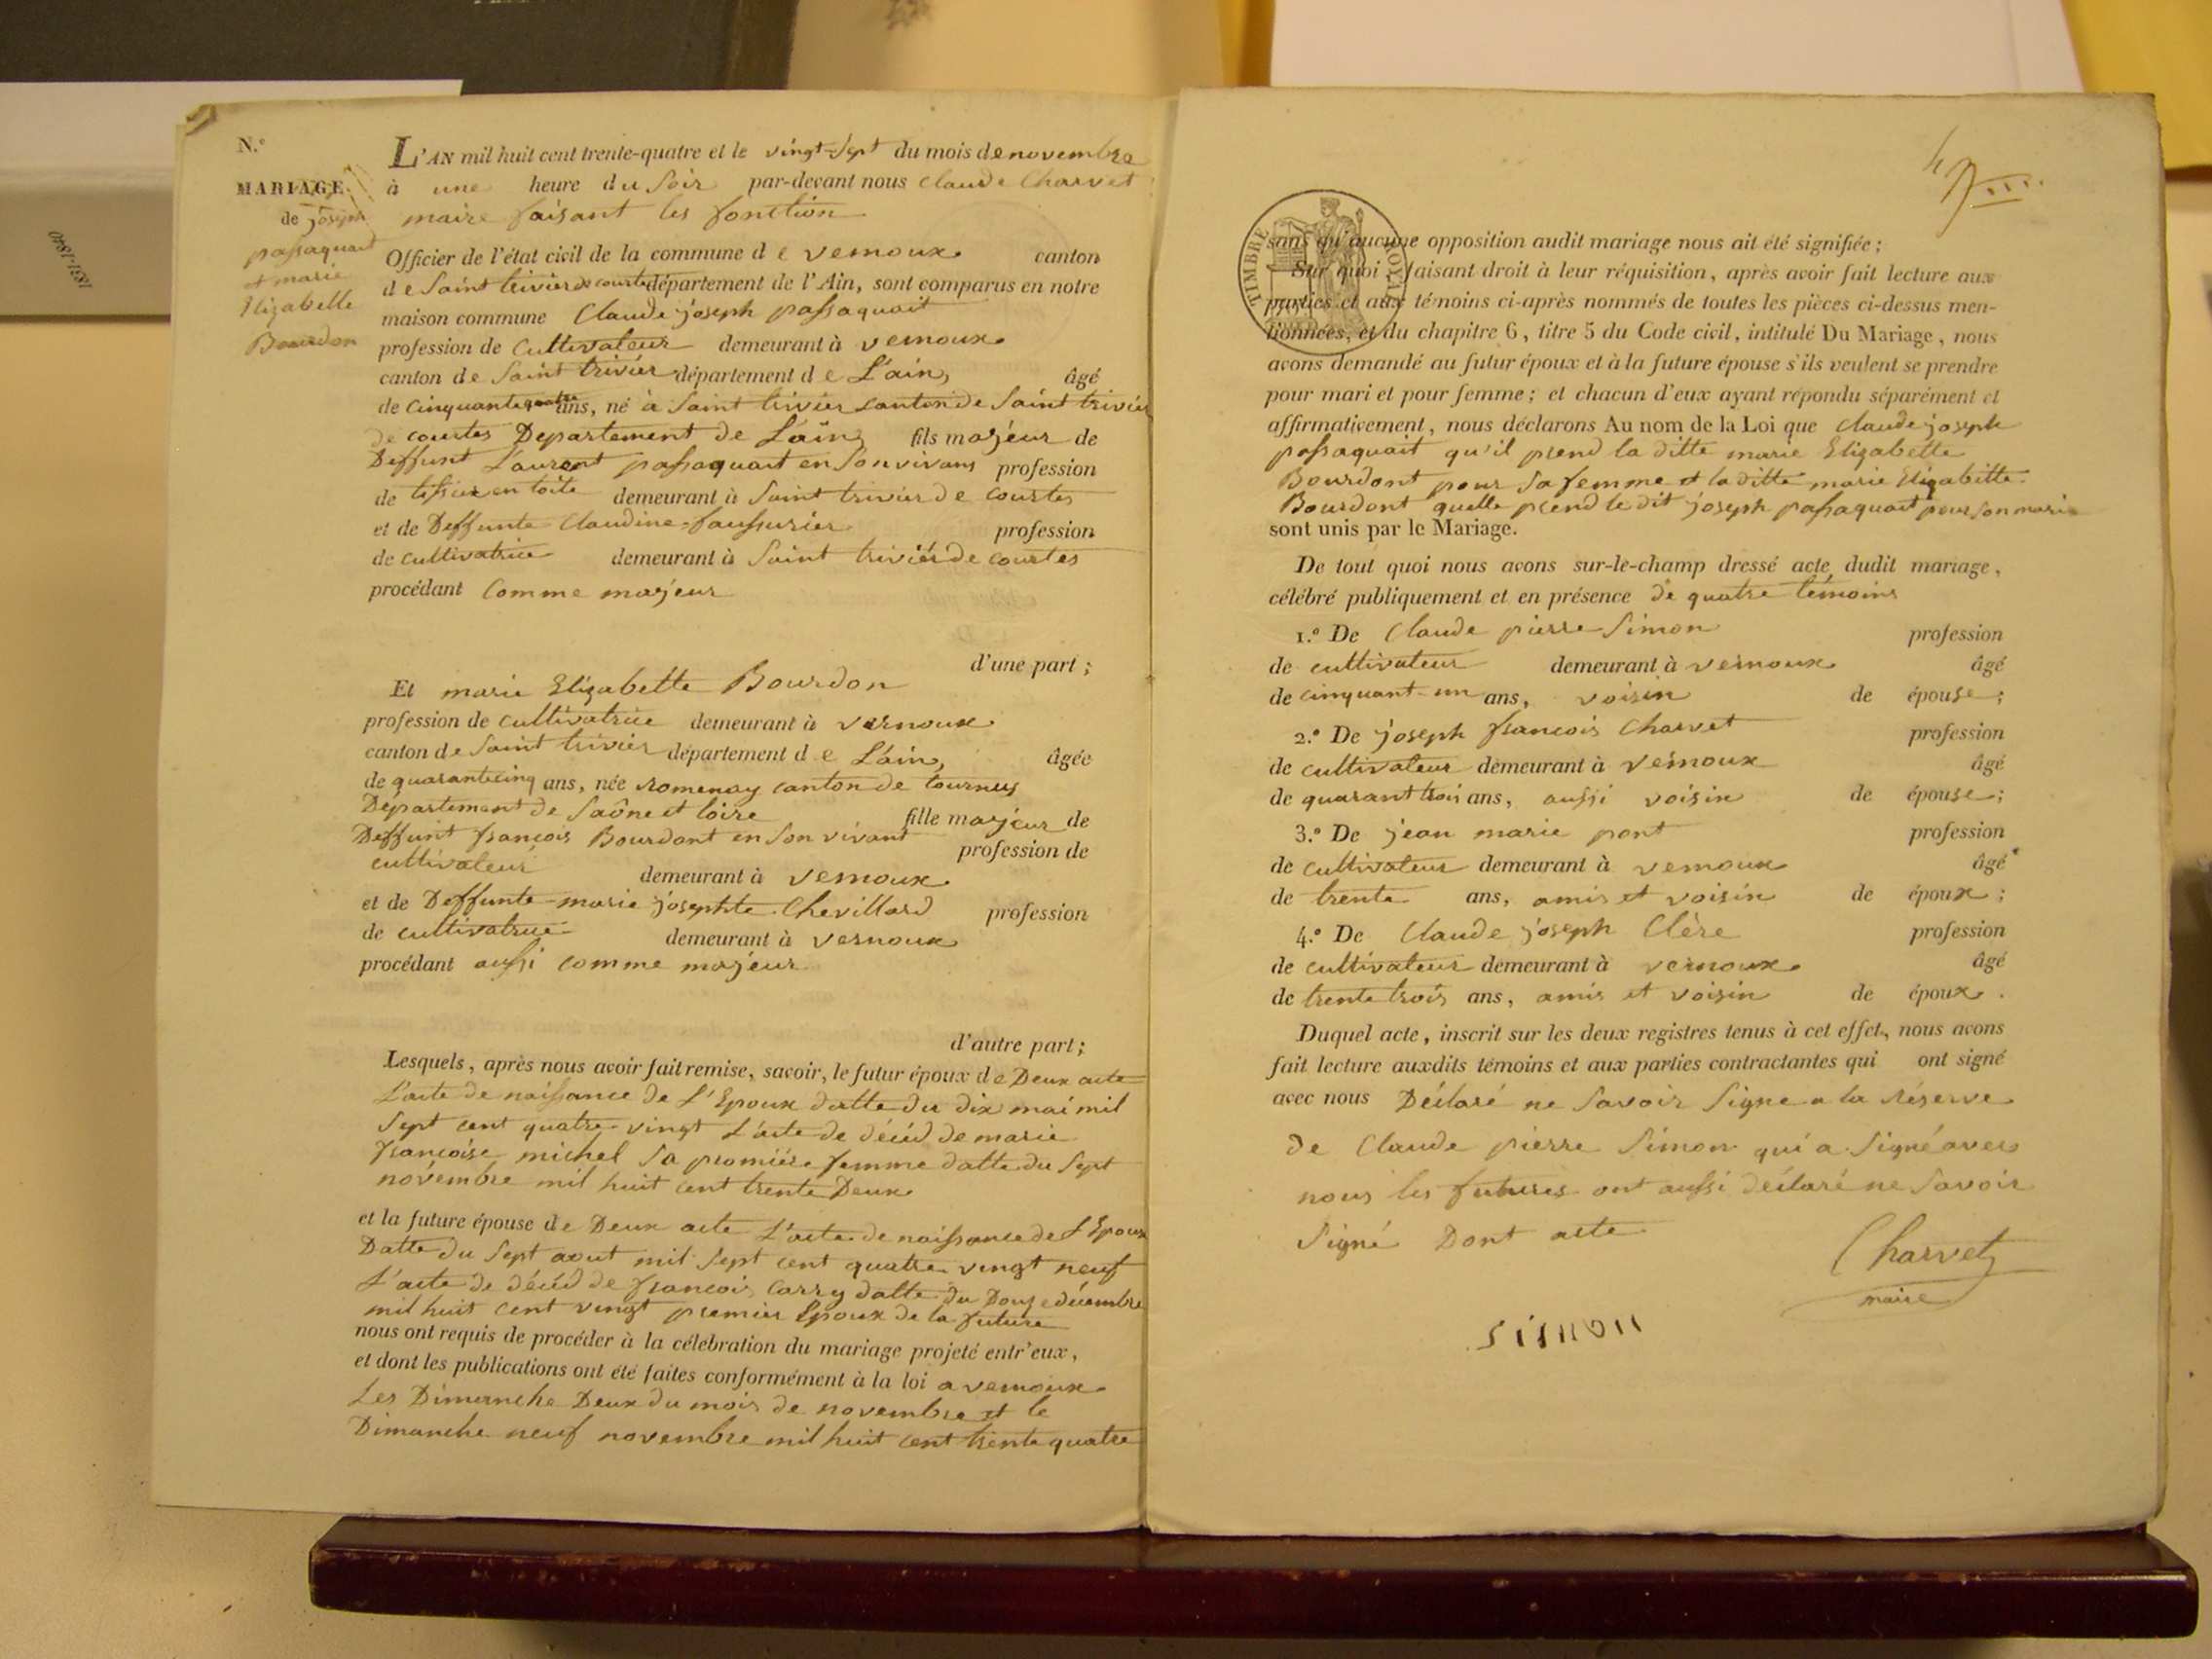 1831-1840
N.°
MARIAGE
de joseph
passaquait
et marie
Elizabette
Bourdon
L'AN mil huit cent trente-quatre et le vingt-sept du mois de novembre
à une heure du soir par-devant nous claude Charvet
maire faisant les fonction
Officier de l'état civil de la commune de vernoux canton
de saint trivier de courtes département de l'Ain, sont comparus en notre
maison commune Claude joseph passaquait
profession de Cultivateur demeurant à vernoux
canton de saint trivier département de L'ain, âgé
de cinquante quatre ans, né à saint trivier canton de saint trivier
de courtes Departement de L'ain, fils majeur de
Deffunt Laurent passaquait en son vivans profession
de tissier en toile demeurant à saint trivier de courtes
et de Deffunte Claudine faussurier profession
de cultivatrice demeurant à saint trivier de courtes
procédant Comme majeur
d'une part ;
Et marie Elizabette Bourdon
profession de cultivatrice demeurant à vernoux
canton de saint trivier département de L'ain, âgée
de quarante cinq ans, née Romenay canton de tournus
Département de saône et loire fille majeur de
Deffunt françois Bourdont en son vivant profession de
cultivateur demeurant à vernoux
et de Deffunte marie josephte Chevillard profession
de cultivatrice demeurant à vernoux
procédant aussi comme majeur
d'autre part ;
Lesquels, après nous avoir fait remise, savoir, le futur époux de Deux acte
L'acte de naissance de L'Epoux datte du dix mai mil
sept cent quatre vingt L'acte de décéd de marie
françoise michel sa premiére femme datte du sept
novembre mil huit cent trente Deux
et la future épouse de Deux acte L'acte de naissance de L'Epoux
Datte du sept aout mil sept cent quatre vingt neuf
L'acte de décéd de françois Carry datte du Douze décembre
mil huit cent vingt premier Epoux de la future
nous ont requis de procéder à la célebration du mariage projeté entr'eux,
et dont les publications ont été faites conformément à la loi a vernoux
Les Dimanche Deux du mois de novembre et le
Dimanche neuf novembre mil huit cent trente quatre
TIMBRE ROYAL
sans qu'aucune opposition audit mariage nous ait été signifiée ;
Sur quoi, faisant droit à leur réquisition, après avoir fait lecture aux
parties et aux témoins ci-après nommés de toutes les pièces ci-dessus men-
tionnées, et du chapitre 6, titre 5 du Code civil, intitulé Du Mariage, nous
avons demandé au futur époux et à la future épouse s'ils veulent se prendre
pour mari et pour femme ; et chacun d'eux ayant répondu séparément et
affirmativement, nous déclarons Au nom de la Loi que claude joseph
passaquait qu'il prend la ditte marie Elizabette
Bourdont pour sa femme et la ditte marie Elizabitte
Bourdont quelle prend le dit joseph passaquait pour son mari
sont unis par le Mariage.
De tout quoi nous avons sur-le-champ dressé acte dudit mariage,
célébré publiquement et en présence de quatre témoins
1.° De Claude pierre Simon profession
de cultivateur demeurant à vernoux âgé
de cinquant-un ans, voisin de épouse ;
2.° De joseph françois Charvet profession
de cultivateur demeurant à vernoux âgé
de quarant trois ans, aussi voisin de épouse ;
3.° De jean marie pont profession
de cultivateur demeurant à vernoux âgé
de trente ans, amis et voisin de époux ;
4.° De Claude joseph Clère profession
de cultivateur demeurant à vernoux âgé
de trente trois ans, amis et voisin de époux.
Duquel acte, inscrit sur les deux registres tenus à cet effet, nous avons
fait lecture auxdits témoins et aux parties contractantes qui ont signé
avec nous Déclaré ne savoir signe a la réserve
de Claude pierre Simon qui a signé avec
nous les futures ont aussi déclaré ne savoir
signé Dont acte
Charvet
maire
simon